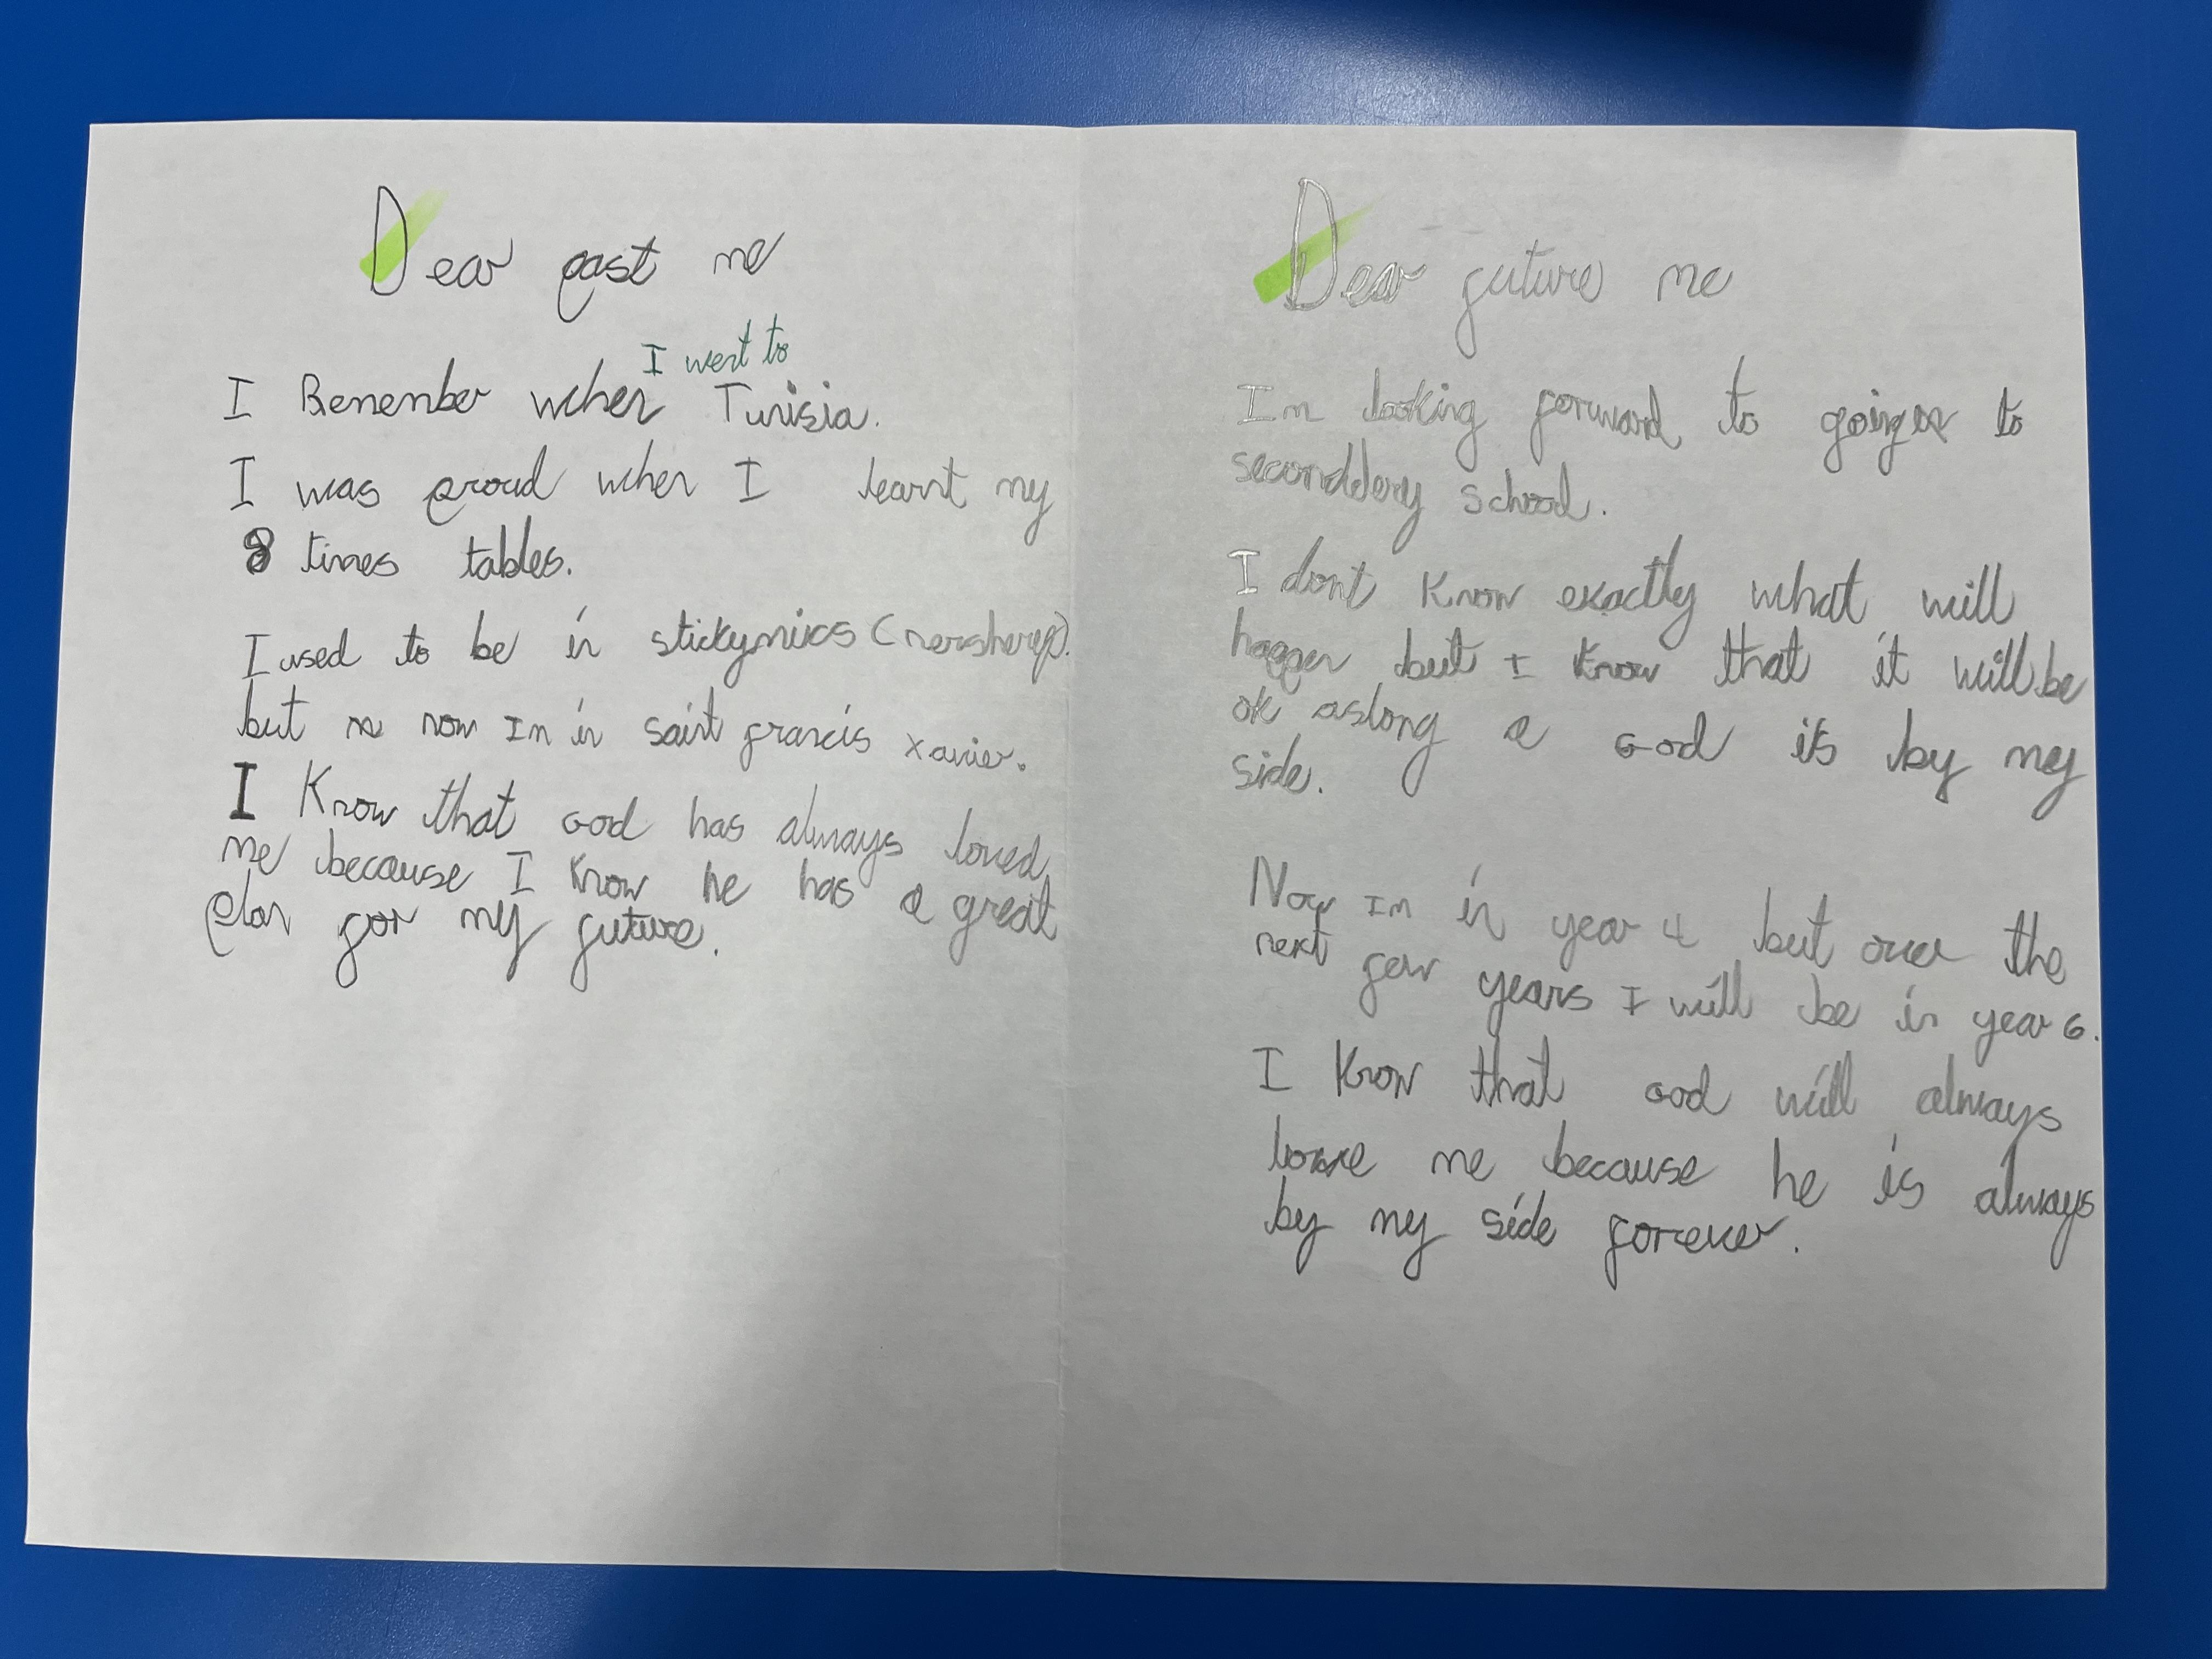 Dear past me
I went to
I Remember wehen Tunisia.
I was proud wehen I learnt my
8 times tables.
I used to be in stickymics (nersherey).
but now Im in saint francis xavier.
I Know that God has always loved
me because I know he has a great
plan for my future.
Dear future me
Im looking forward to going to
seconddery school.
I dont know exactly what will
happen but I know that it will be
ok aslong a God is by my
side.
Now Im in year 4 but over the
next few years I will be in year 6.
I know that God will always
love me because he is always
by my side forever.